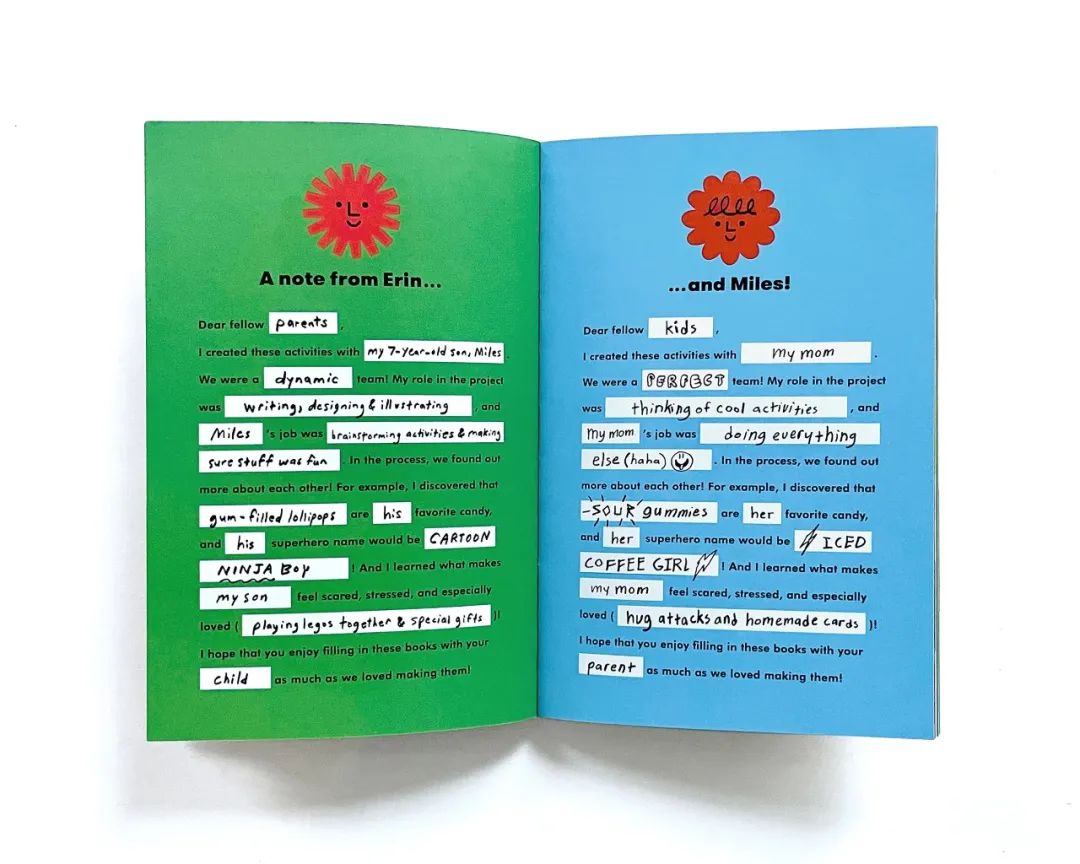 A note from Erin...
Dear fellow parents,
I created these activities with my 7-year-old son, Miles.
We were a dynamic team! My role in the project
was writing, designing & illustrating, and
Miles's job was brainstorming activities & making
sure stuff was fun. In the process, we found out
more about each other! For example, I discovered that
gum-filled lollipops are his favorite candy,
and his superhero name would be CARTOON
NINJA BOY! And I learned what makes
my son feel scared, stressed, and especially
loved (playing legos together & special gifts)!
I hope that you enjoy filling in these books with your
child as much as we loved making them!
...and Miles!
Dear fellow kids,
I created these activities with my mom.
We were a PERFECT team! My role in the project
was thinking of cool activities, and
my mom's job was doing everything
else (haha). In the process, we found out
more about each other! For example, I discovered that
SOUR gummies are her favorite candy,
and her superhero name would be ICED
COFFEE GIRL! And I learned what makes
my mom feel scared, stressed, and especially
loved (hug attacks and homemade cards)!
I hope that you enjoy filling in these books with your
parent as much as we loved making them!